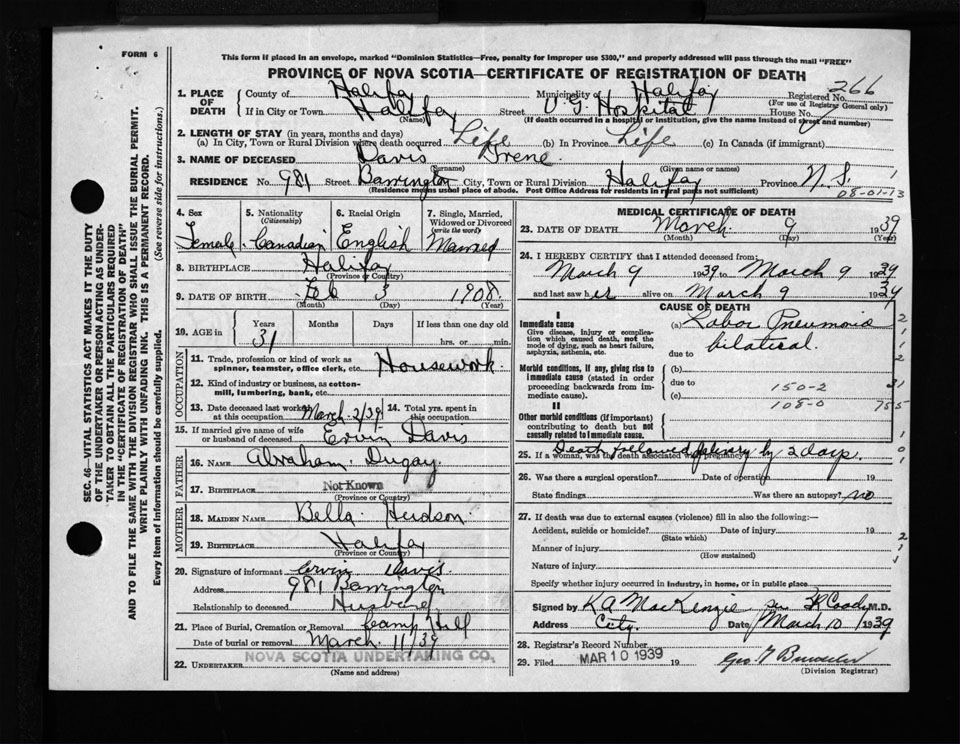 FORM 6
This form if placed in an envelope, marked "Dominion Statistics—Free, penalty for improper use $300," and properly addressed will pass through the mail "FREE"
PROVINCE OF NOVA SCOTIA—CERTIFICATE OF REGISTRATION OF DEATH
266
1. PLACE OF DEATH County of Halifax Municipality of Halifax Registered No. (For use of Registrar General only)
If in City or Town Halifax (Name) Street V. G. Hospital House No.
(If death occurred in a hospital or institution, give the name instead of street and number)
2. LENGTH OF STAY (in years, months and days)
(a) In City, Town or Rural Division where death occurred Life (b) In Province Life (c) In Canada (if immigrant)
3. NAME OF DECEASED Davis Irene
(Surname) (Given name or names)
RESIDENCE No. 981 Street Barrington City, Town or Rural Division Halifax Province N.S. 1
(Residence means usual place of abode. Post Office Address for residents in rural parts not sufficient)
08-01-13
4. Sex 5. Nationality (Citizenship) 6. Racial Origin 7. Single, Married, Widowed or Divorced (write the word)
Female Canadian English Married
8. BIRTHPLACE Halifax
(Province or Country)
9. DATE OF BIRTH Feb 3 1908
(Month) (Day) (Year)
10. AGE in Years Months Days If less than one day old
31 hrs. or min.
OCCUPATION
11. Trade, profession or kind of work as spinner, teamster, office clerk, etc. Housework
12. Kind of industry or business, as cotton-mill, lumbering, bank, etc.
13. Date deceased last worked at this occupation March 2/39 14. Total yrs. spent in this occupation
15. If married give name of wife or husband of deceased Ervin Davis
FATHER
16. NAME Abraham Dugay
17. BIRTHPLACE Not Known
(Province or Country)
MOTHER
18. MAIDEN NAME Bella Hudson
19. BIRTHPLACE Halifax
(Province or Country)
20. Signature of informant Ervin Davis
Address 981 Barrington
Relationship to deceased Husband
21. Place of Burial, Cremation or Removal Camp Hill
Date of burial or removal March 11/39
22. UNDERTAKER NOVA SCOTIA UNDERTAKING CO.
(Name and address)
MEDICAL CERTIFICATE OF DEATH
23. DATE OF DEATH March 9 1939
(Month) (Day) (Year)
24. I HEREBY CERTIFY that I attended deceased from
March 9 1939 to March 9 1939
and last saw her alive on March 9 1939
CAUSE OF DEATH
I
Immediate cause (a) Lobar Pneumonia
Give disease, injury or complication which caused death, not the mode of dying, such as heart failure, asphyxia, asthenia, etc.
bilateral.
due to
Morbid conditions, if any, giving rise to immediate cause (stated in order proceeding backwards from immediate cause).
(b)
due to 150-2
(c) 108-0
II
Other morbid conditions (if important) contributing to death but not causally related to immediate cause.
25. If a woman, was the death associated with pregnancy? Death followed delivery by 2 days.
26. Was there a surgical operation? Date of operation 19
State findings Was there an autopsy? no
27. If death was due to external causes (violence) fill in also the following:—
Accident, suicide or homicide? Date of injury 19
(State which)
Manner of injury
(How sustained)
Nature of injury
Specify whether injury occurred in industry, in home, or in public place
Signed by K A MacKenzie per M.D.
Address City. Date March 10 1939
28. Registrar's Record Number
29. Filed MAR 10 1939 19
(Division Registrar)
SEC. 46—VITAL STATISTICS ACT MAKES IT THE DUTY
OF THE UNDERTAKER OR PERSON ACTING AS UNDER-
TAKER TO OBTAIN ALL THE PARTICULARS REQUIRED
IN THE "CERTIFICATE OF REGISTRATION OF DEATH"
AND TO FILE THE SAME WITH THE DIVISION REGISTRAR WHO SHALL ISSUE THE BURIAL PERMIT.
WRITE PLAINLY WITH UNFADING INK. THIS IS A PERMANENT RECORD.
Every item of information should be carefully supplied. (See reverse side for instructions.)